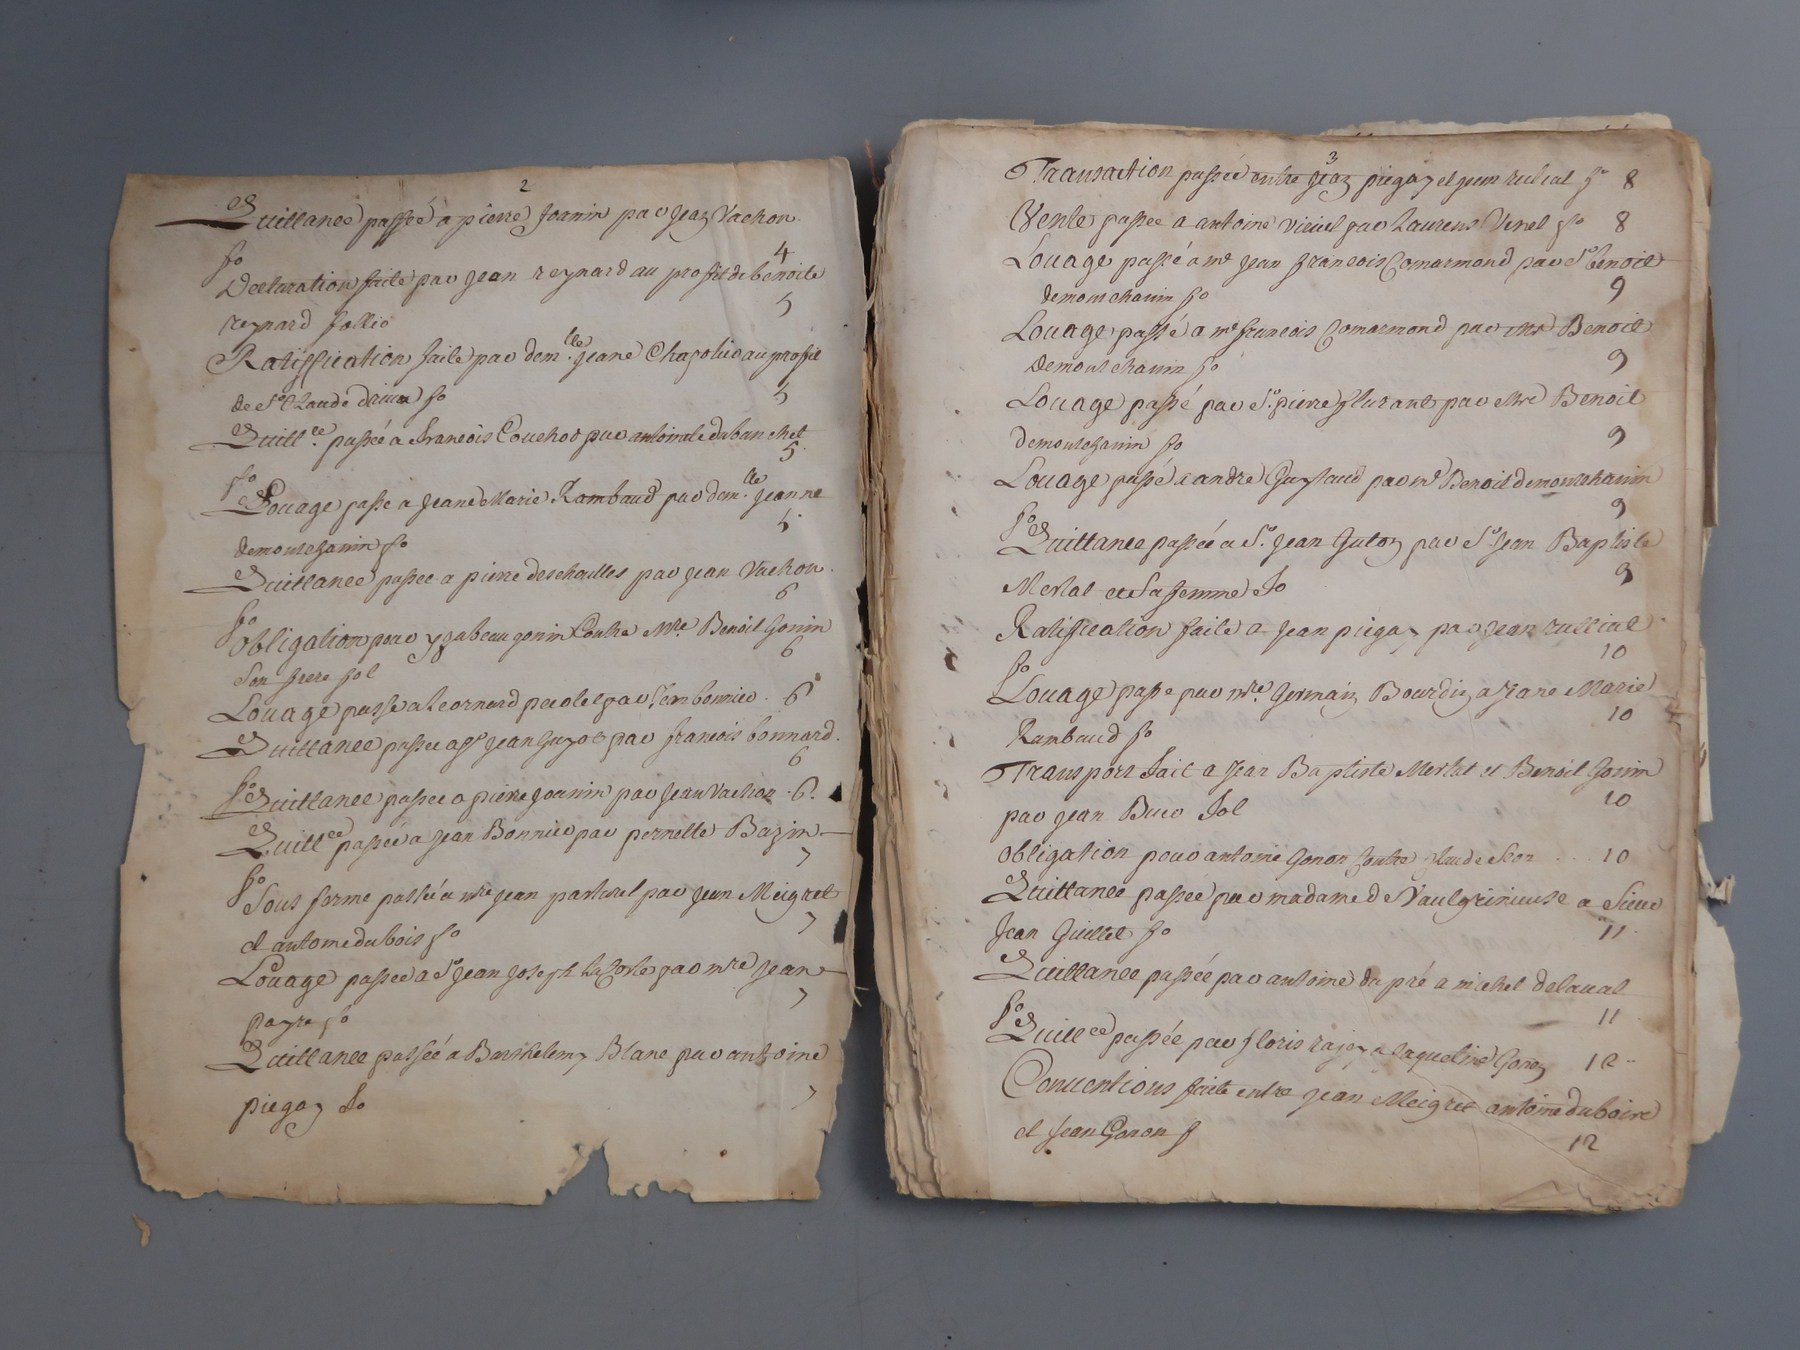 2
Quittance passée a pierre Joanin par Jean Vachon
fo 4
Declaration faite par Jean reynard au profit de benoite
reynard follio 5
Ratiffication faite par dem.lle Jeane au proffit
de Sr Claude fo 5
Quitt.ce passée a François Couchor par antoine dubanchet
fo 5
Louage passe a Jeane Marie Rambaud par dem.lle Jeanne
demontchanin fo 5
Quittance passee a pierre deschailles par Jean Vachon
fo 6
Obligation pour yzabeau gonin Contre Mre Benoit Gonin
Son frere fol 6
Louage passe a Leornard par 6
Quittance passee a Sr Jean Guyot par francois bonnard
fo 6
Quittance passee a pierre Joanin par Jean Vachon 6
Quittce passée a Jean Bonnier par pernette Bazin
fo 7
Sous ferme passée a mre Jean par Jean Meigret
et antoine dubois fo 7
Louage passee a Sr Jean Joseph par mre Jean
payre fo 7
Quittance passée a Barthelemy Blanc par antoine
piegay fo 7
3
Transaction passée entre Jean piegay et Jean rulial fo 8
Vente passee a antoine par Laurens Venet fo 8
Louage passé a mre Jean françois Comarmond par Sr benoit
demontchanin fo 9
Louage passé a mre francois Comarmond par mre Benoit
Demontchanin fo 9
Louage passé par Sr. pierre flurant par Mre Benoit
Demontchanin fo 9
Louage passé a andré Guyfaud par mr Benoit demontchanin
fo 9
Quittance passée a Sr. Jean Guton par Sr. Jean Baptiste
Merlat et Sa femme fo 9
Ratification faite a Jean piegay par Jean rullial
fo 10
Louage passe par mre. Germain Bourdin a Jane Marie
Rambaud fo 10
Transport fait a Jean Baptiste Merlat et Benoit Gonin
par Jean Buer fol 10
Obligation pour antoine Gonon Contre Claude 10
Quittance passée par madame de Vaulgrineuse a Sieur
Jean Guillet fo 11
Quittance passée par antoine du pré a michel delaval
fo 11
Quittce passée par floris a Jaqueline Gonon 12
Conventions faite entre Jean Meigret antoine duboire
et Jean Gonon f 12